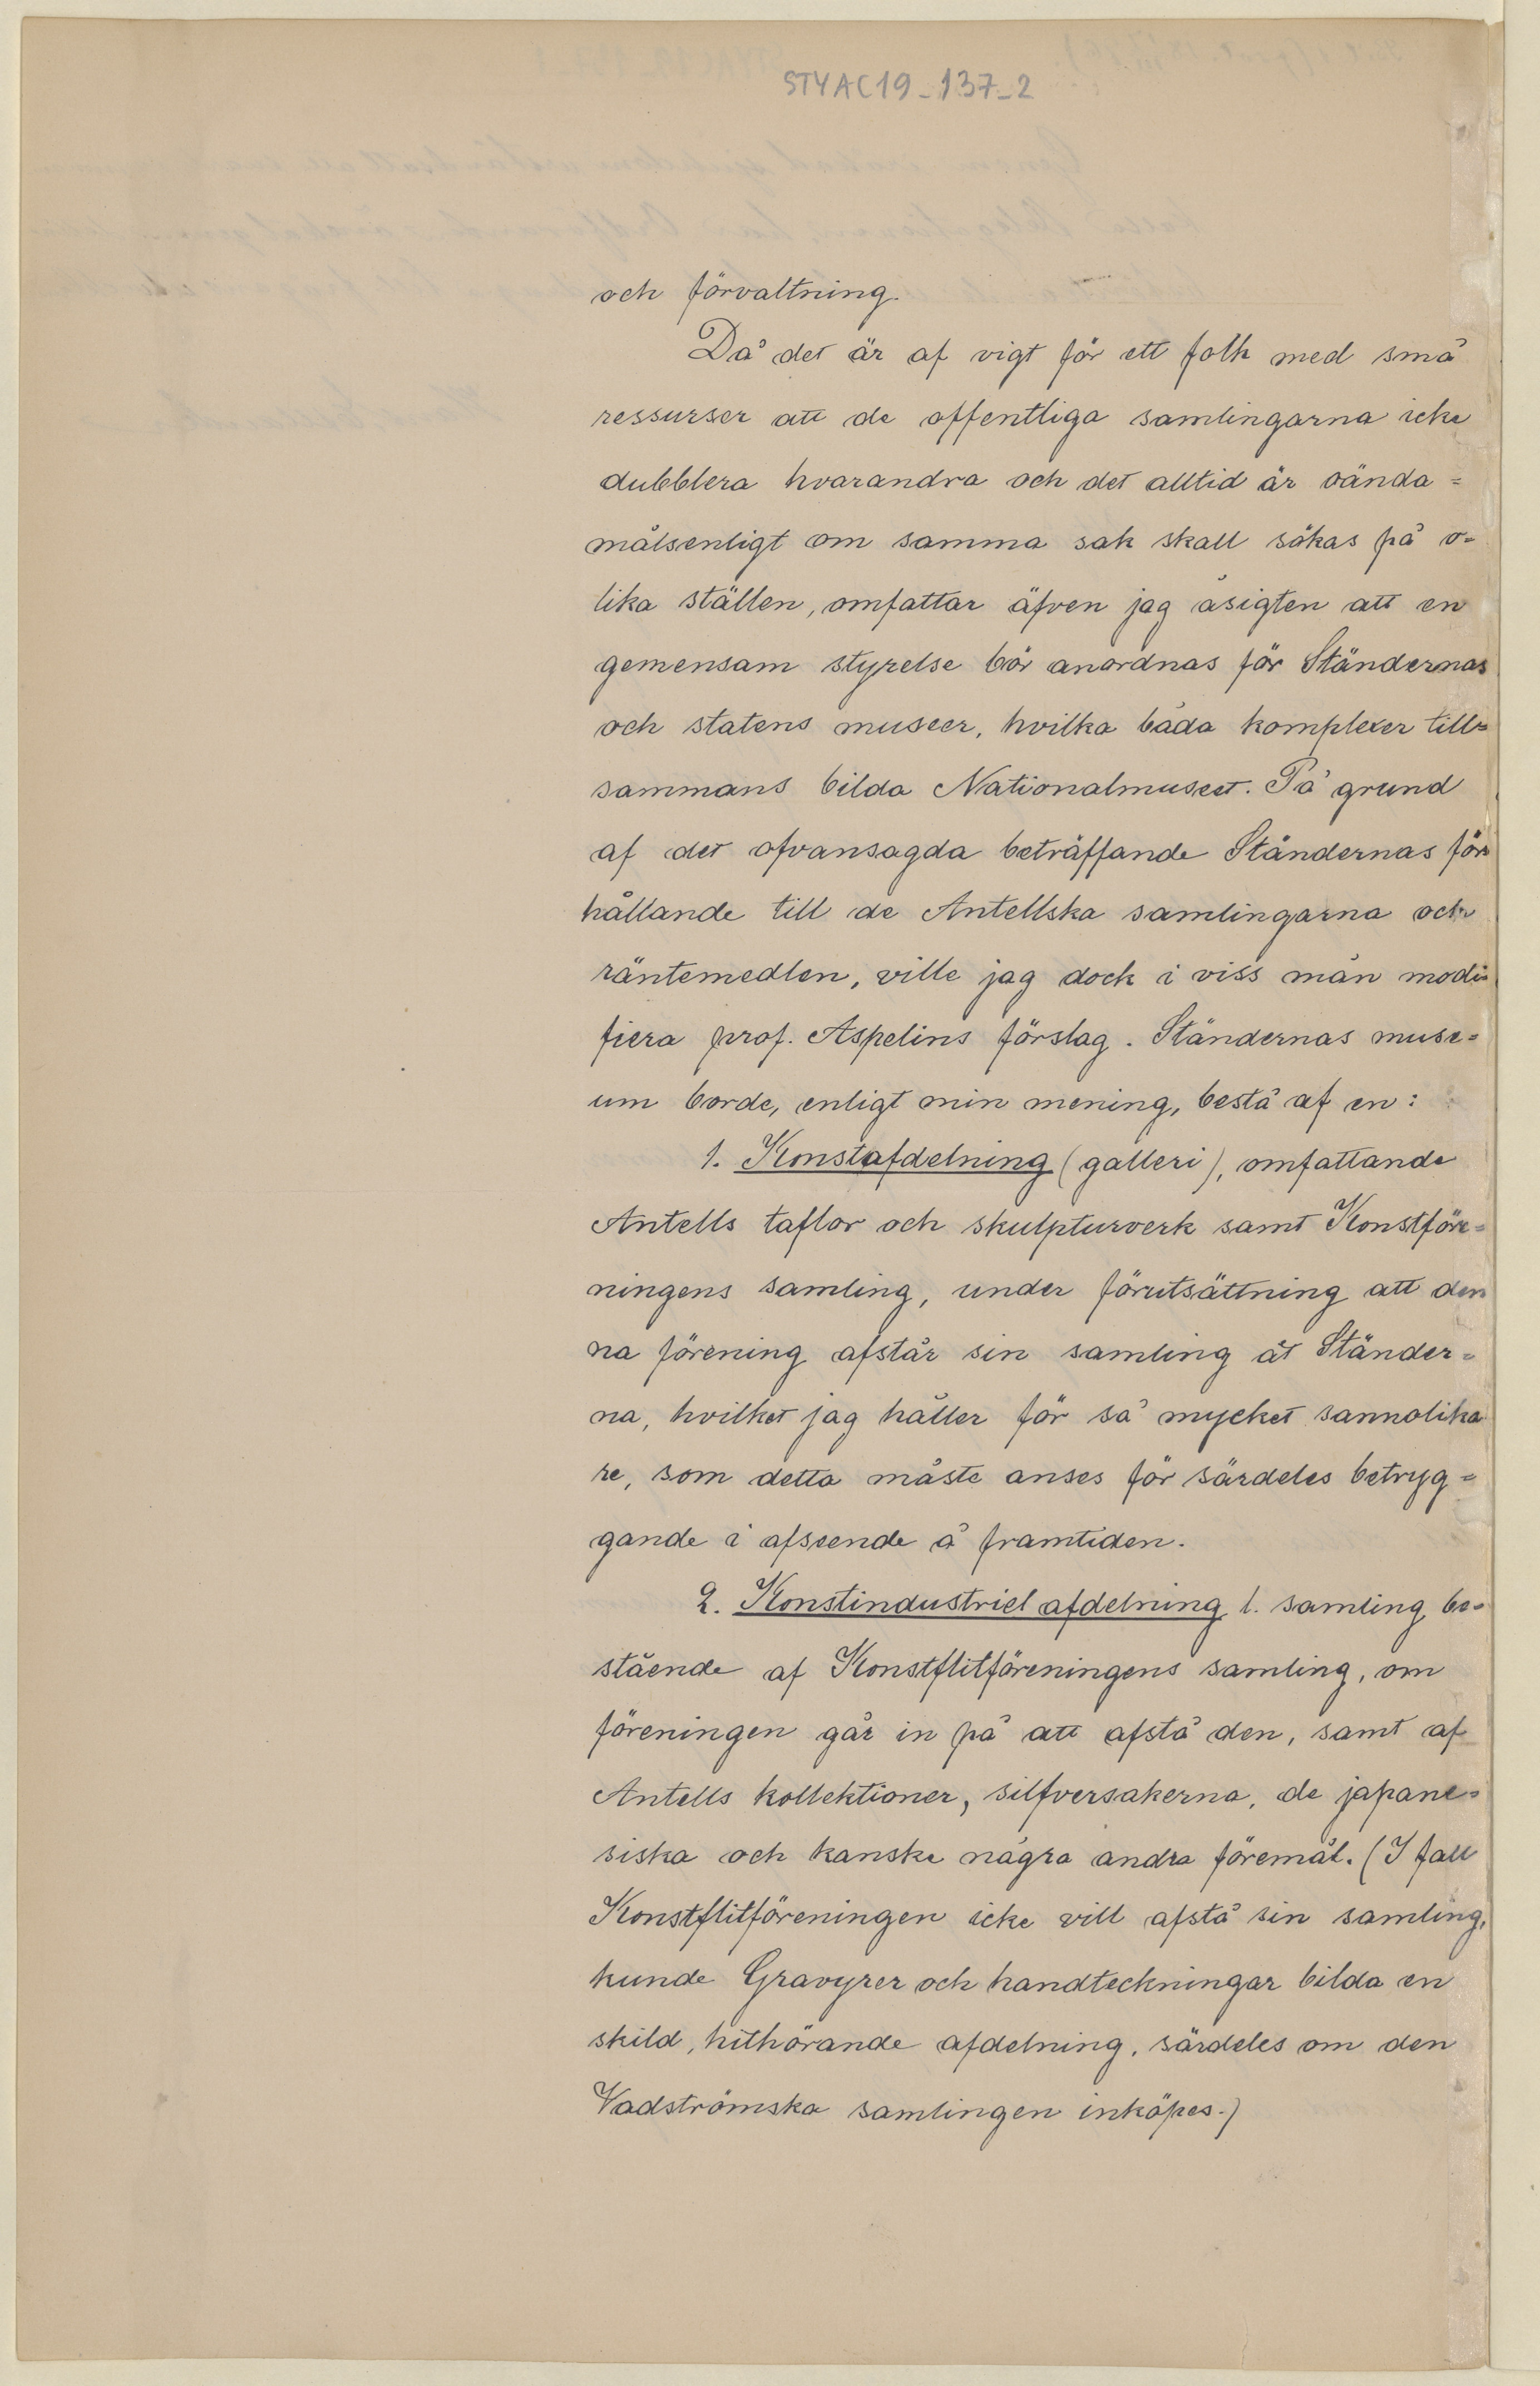 STYAC19_137_2
och förvaltning.
Då det är af vigt för ett folk med små
ressurser att de offentliga samlingarna icke
dubblera hvarandra och det alltid är oända=
målsenligt om samma sak skall sökas på o=
lika ställen, omfattar äfven jag åsigten att en
gemensam styrelse bör anordnas för Ständernas
och statens museer, hvilka båda komplexer till=
sammans bilda Nationalmuseet. På grund
af det ofvansagda beträffande Ständernas för
hållande till de Antellska samlingarna och
räntemedlen, ville jag dock i viss mån modi=
fiera prof. Aspelins förslag. Ständernas muse=
um borde, enligt min mening, bestå af en:
1. Konstafdelning (galleri), omfattande
Antells taflor och skulpturverk samt Konstföre=
ningens samling, under förutsättning att den
na förening afstår sin samling åt Ständer=
na, hvilket jag håller för så mycket sannolika
re, som detta måste anses för särdeles betryg=
gande i afseende å framtiden.
2. Konstindustriel afdelning l. samling, be=
stående af Konstflitföreningens samling, om
föreningen går in på att afstå den, samt af
Antells kollektioner, silfversakerna, de japane=
siska och kanske några andra föremål. (I fall
Konstflitföreningen icke vill afstå sin samling,
kunde Gravyrer och handteckningar bilda en
skild, hithörande afdelning, särdeles om den
Vadströmska samlingen inköpes.)